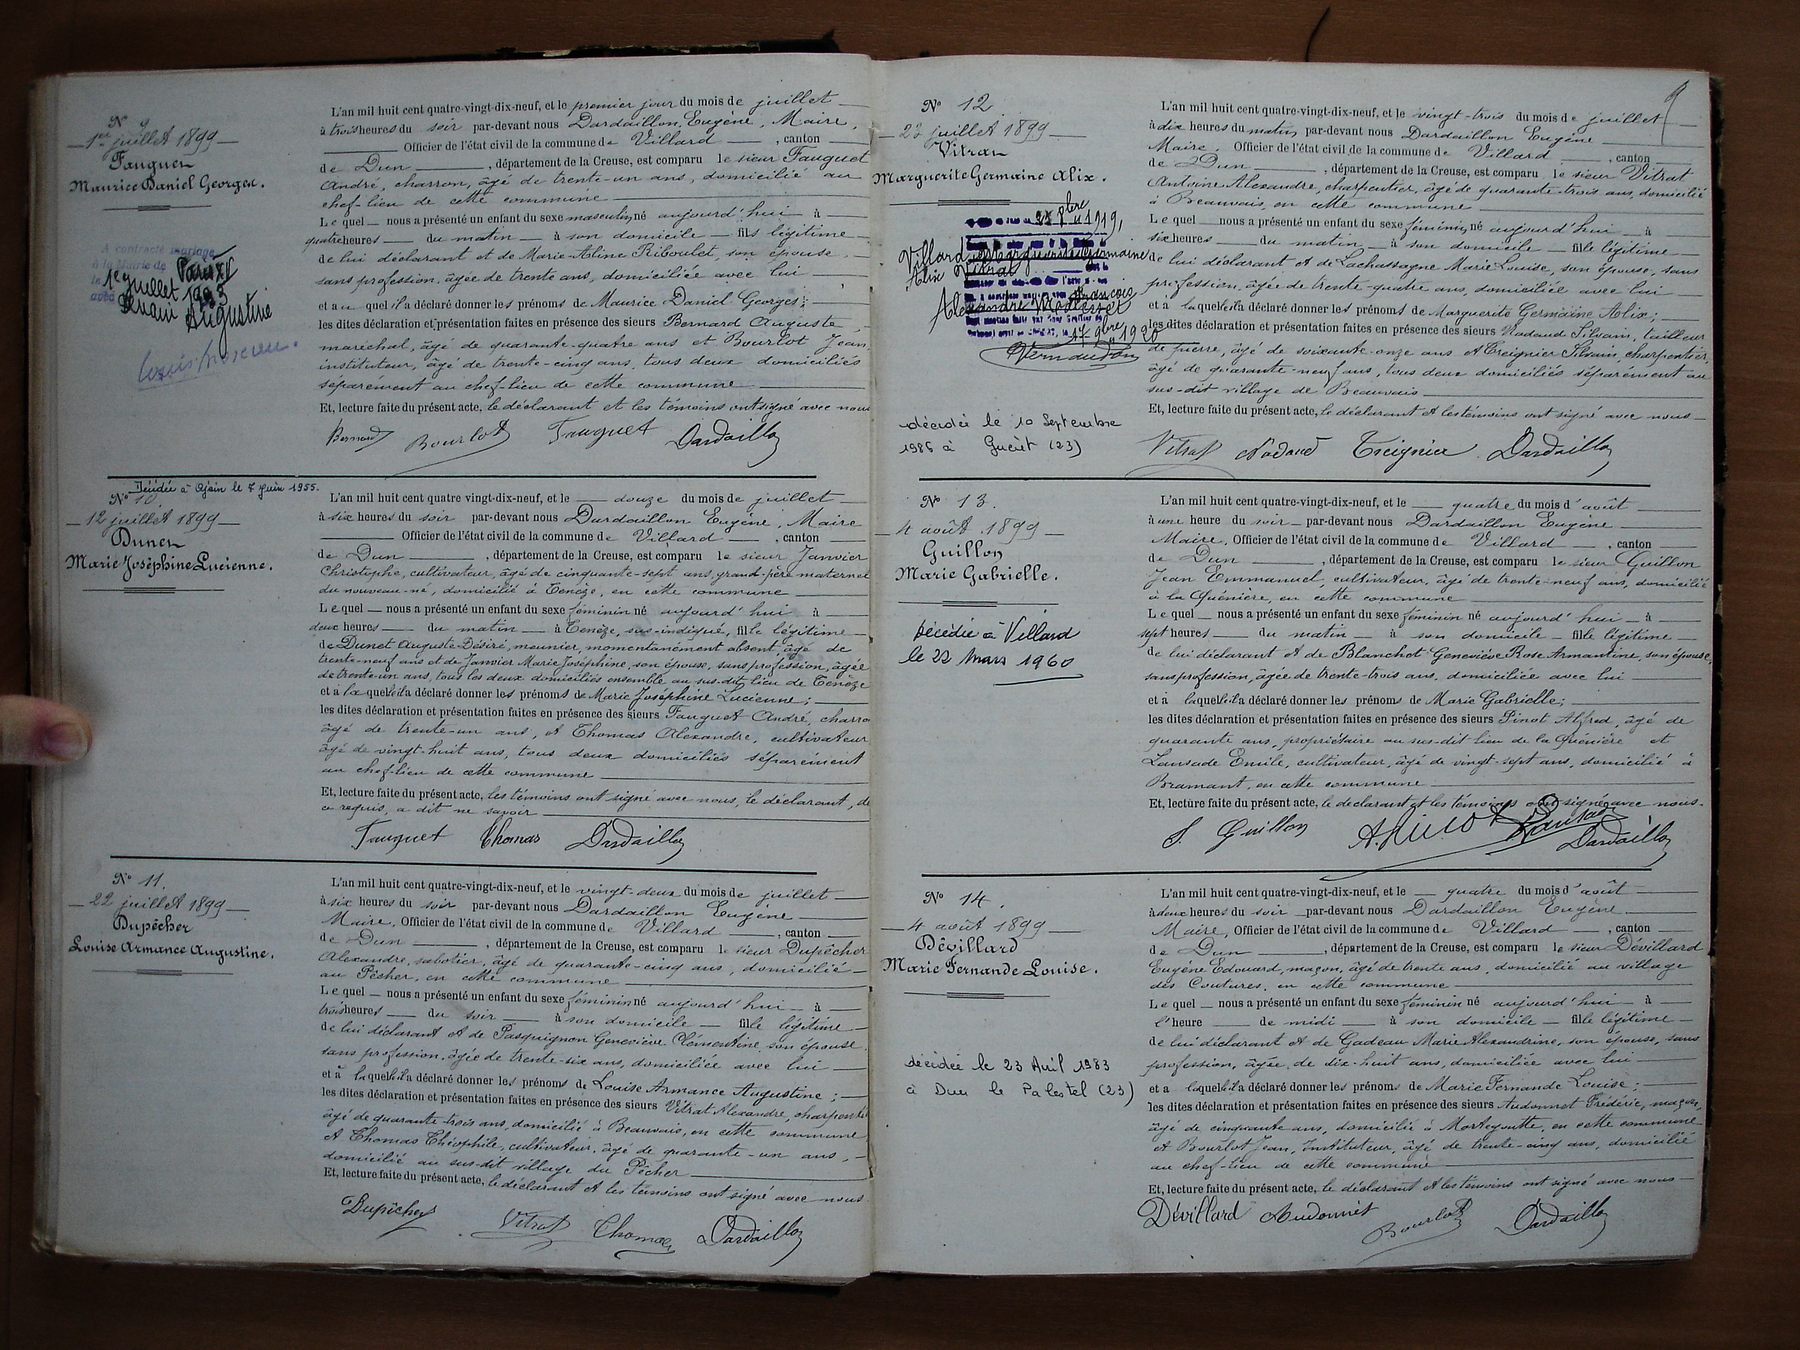 N° 9
1er juillet 1899
Fauguet
Maurice Daniel Georges.
A contracté mariage
à la Mairie de Paris X
le 1er juillet 1923
avec
Augustine
L'an mil huit cent quatre-vingt-dix-neuf, et le premier jour du mois de juillet
à trois heures du soir par-devant nous Dardaillon, Eugène, Maire,
Officier de l'état civil de la commune de Villard, canton
de Dun, département de la Creuse, est comparu le sieur Fauguet
André, charron, âgé de trente-un ans, domicilié au
chef-lieu de cette commune
Lequel nous a présenté un enfant du sexe masculin, né aujourd'hui à
quatre heures du matin à son domicile fils légitime
de lui déclarant et de Marie-Aline Riboulet, son épouse,
sans profession, âgée de trente ans, domiciliée avec lui
et au quel il a déclaré donner les prénoms de Maurice Daniel Georges;
les dites déclaration et présentation faites en présence des sieurs Bernard Auguste,
maréchal, âgé de quarante-quatre ans et Bourlot Jean,
instituteur, âgé de trente-cinq ans, tous deux domiciliés
séparément au chef-lieu de cette commune
Et, lecture faite du présent acte, le déclarant et les témoins ont signé avec nous
Bernard Bourlot Fauguet Dardaillon
Décédée à Ajain le 7 Juin 1955.
N° 10
12 juillet 1899
Dunet
Marie Joséphine Lucienne.
L'an mil huit cent quatre vingt-dix-neuf, et le douze du mois de juillet
à six heures du soir par-devant nous Dardaillon Eugène, Maire
Officier de l'état civil de la commune de Villard, canton
de Dun, département de la Creuse, est comparu le sieur Janvier
Christophe, cultivateur, âgé de cinquante-sept ans, grand-père maternel
du nouveau-né, domicilié à Tenèze, en cette commune
Lequel nous a présenté un enfant du sexe féminin né aujourd'hui à
deux heures du matin à Tenèze, sus-indiqué, fille légitime
de Dunet Auguste Désiré, meunier, momentanément absent, âgé de
trente-neuf ans et de Janvier Marie Joséphine, son épouse, sans profession, âgée
de trente-un ans, tous les deux domiciliés ensemble au sus-dit lieu de Tenèze
et à la quelle il a déclaré donner les prénoms de Marie Joséphine Lucienne;
les dites déclaration et présentation faites en présence des sieurs Fauguet André, charron
âgé de trente-un ans, et Thomas Alexandre, cultivateur
âgé de vingt-huit ans, tous deux domiciliés séparément
au chef-lieu de cette commune
Et, lecture faite du présent acte, les témoins ont signé avec nous, le déclarant, de
ce requis, a dit ne savoir
Fauguet Thomas Dardaillon
N° 11.
22 juillet 1899
Dupêcher
Louise Armance Augustine.
L'an mil huit cent quatre-vingt-dix-neuf, et le vingt-deux du mois de juillet
à six heures du soir par-devant nous Dardaillon Eugène
Maire, Officier de l'état civil de la commune de Villard, canton
de Dun, département de la Creuse, est comparu le sieur Dupêcher
Alexandre, sabotier, âgé de quarante-cinq ans, domicilié
au Pêcher, en cette commune
Lequel nous a présenté un enfant du sexe féminin né aujourd'hui à
trois heures du soir à son domicile fille légitime
de lui déclarant et de Pasquignon Geneviève Clémentine, son épouse,
sans profession, âgée de trente-six ans, domiciliée avec lui
et à laquelle il a déclaré donner les prénoms de Louise Armance Augustine;
les dites déclaration et présentation faites en présence des sieurs Vitrat Alexandre, charpentier
âgé de quarante trois ans, domicilié à Beauvais, en cette commune
et Thomas Théophile, cultivateur, âgé de quarante-un ans,
domicilié au sus-dit village du Pêcher
Et, lecture faite du présent acte, le déclarant et les témoins ont signé avec nous
Dupêcher Vitrat Thomas Dardaillon
9
N° 12
23 juillet 1899
Vitrat
Marguerite Germaine Alix.
1919,
Villard Marguerite Germaine
Alix Vitrat
Alexandre François
17 9bre 1920
Vernaudon
décédée le 10 Septembre
1986 à Guéret (23)
L'an mil huit cent quatre-vingt-dix-neuf, et le vingt-trois du mois de juillet
à dix heures du matin, par-devant nous Dardaillon Eugène
Maire, Officier de l'état civil de la commune de Villard, canton
de Dun, département de la Creuse, est comparu le sieur Vitrat
Antoine Alexandre, charpentier, âgé de quarante-trois ans, domicilié
à Beauvais, en cette commune
Lequel nous a présenté un enfant du sexe féminin, né aujourd'hui à
six heures du matin à son domicile fille légitime
de lui déclarant et de Lachassagne Marie Louise, son épouse, sans
profession, âgée de trente-quatre ans, domiciliée avec lui
et à laquelle il a déclaré donner les prénoms de Marguerite Germaine Alix;
les dites déclaration et présentation faites en présence des sieurs Nadaud Silvain, tailleur
de pierre, âgé de soixante-onze ans et Treignier Silvain, charpentier,
âgé de quarante-neuf ans, tous deux domiciliés séparément au
sus-dit village de Beauvais
Et, lecture faite du présent acte, le déclarant et les témoins ont signé avec nous
Vitrat Nadaud Treignier Dardaillon
N° 13.
4 août 1899
Guillon
Marie Gabrielle.
Décédée à Villard
le 22 Mars 1960
L'an mil huit cent quatre-vingt-dix-neuf, et le quatre du mois d'août
à une heure du soir par-devant nous Dardaillon Eugène
Maire, Officier de l'état civil de la commune de Villard, canton
de Dun, département de la Creuse, est comparu le sieur Guillon
Jean Emmanuel, cultivateur, âgé de trente-neuf ans, domicilié
à la Guénière, en cette commune
Lequel nous a présenté un enfant du sexe féminin né aujourd'hui à
sept heures du matin à son domicile fille légitime
de lui déclarant et de Blanchet Geneviève Rose Armantine, son épouse,
sans profession, âgée de trente-trois ans, domiciliée avec lui
et à laquelle il a déclaré donner les prénoms de Marie Gabrielle;
les dites déclaration et présentation faites en présence des sieurs Pinot Alfred, âgé de
quarante ans, propriétaire au sus-dit lieu de la Guénière et
Lansade Emile, cultivateur, âgé de vingt-sept ans, domicilié à
Bramant, en cette commune
Et, lecture faite du présent acte, le déclarant et les témoins ont signé avec nous.
J. Guillon A. Pinot Lansade Dardaillon
N° 14.
4 août 1899
Dévillard
Marie Fernande Louise.
décédée le 23 Avril 1983
à Dun le Palestel (23)
L'an mil huit cent quatre-vingt-dix-neuf, et le quatre du mois d'août
à deux heures du soir par-devant nous Dardaillon Eugène
Maire, Officier de l'état civil de la commune de Villard, canton
de Dun, département de la Creuse, est comparu le sieur Dévillard
Eugène Edouard, maçon, âgé de trente ans, domicilié au village
des Coutures, en cette commune
Lequel nous a présenté un enfant du sexe féminin né aujourd'hui à
l'heure de midi à son domicile fille légitime
de lui déclarant et de Gadeau Marie Alexandrine, son épouse, sans
profession, âgée de dix-huit ans, domiciliée avec lui
et à laquelle il a déclaré donner les prénoms de Marie Fernande Louise;
les dites déclaration et présentation faites en présence des sieurs Audonnet Frédéric, maçon,
âgé de cinquante ans, domicilié à Mortegoutte, en cette commune
et Bourlot Jean, Instituteur, âgé de trente-cinq ans, domicilié
au chef-lieu de cette commune
Et, lecture faite du présent acte, le déclarant et les témoins ont signé avec nous
Dévillard Audonnet Bourlot Dardaillon